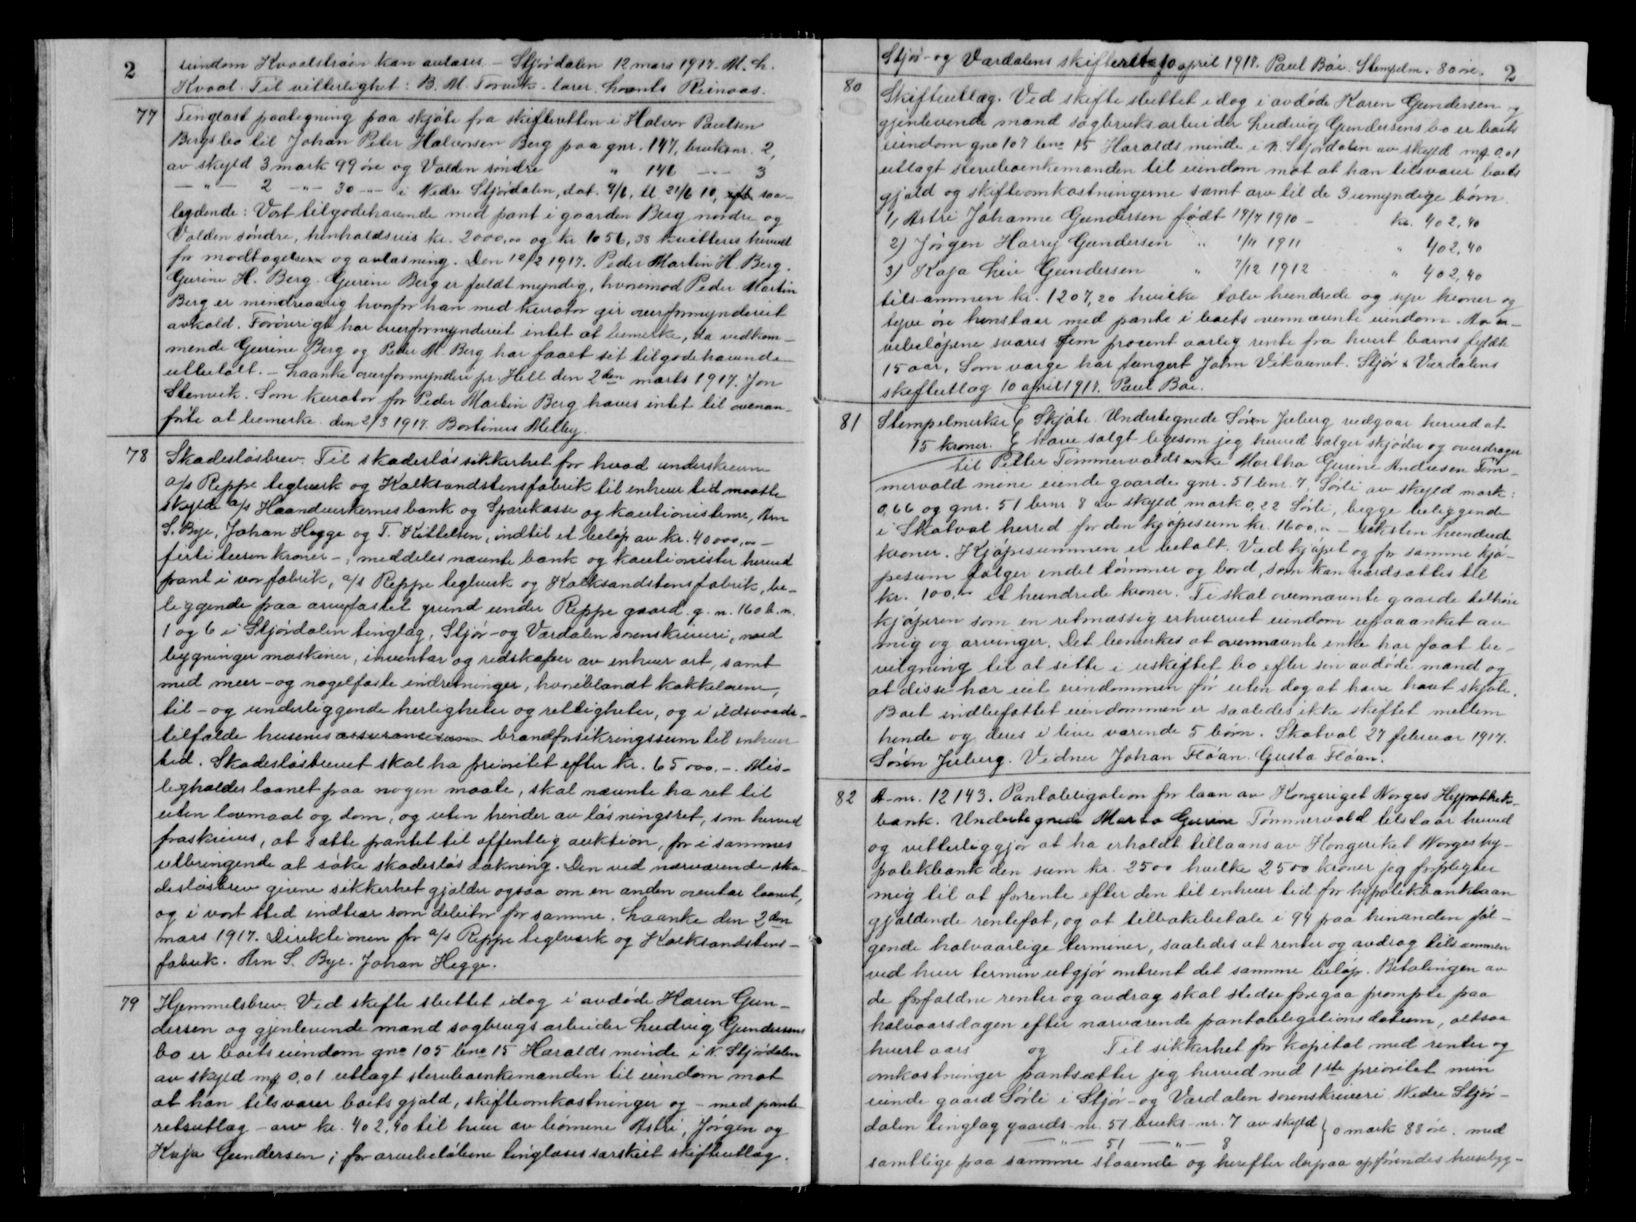 2
eiendom Kvaalstrøen kan avlæses. – Stjørdalen 12 mars 1917. M. h.
Kvaal. Til vitterlighet: B. M. Torvik. lærer.
77
Tinglæst paategning paa skjøte fra skifteretten i Halvor Paulsen
Bergs bo til Johan Peter Halvorsen Berg paa gnr. 147, bruksnr. 2,
av skyld 3 mark 99 øre og Volden søndre " 146 -"- 3
-"- 2 -"- 30 -"- i Nedre Stjørdalen, dat. 9/6, tl 21/6 10, saa-
lydende: Vort tilgodehavende med pant i gaarden Berg nordre og
Volden søndre, henholdsvis kr. 2000,00 og kr. 1056,38 kvitteres herved
for modtagelsen og avlæsning. Den 12/2 1917. Peder Martin H. Berg.
Gurine H. Berg. Gurine Berg er fuldt myndig, hvorimod Peder Martin
Berg er mindreaarig hvorfor han med kurator gir overformynderiet
avkald. Forøvrig har overformynderiet intet at bemerke, da vedkom-
mende Gurine Berg og Peder M. Berg har faaet sit tilgodehavende
utbetalt. – Laanke overformynderi pr. Hell den 2den marts 1917. Jon
Stenvik. Som kurator for Peder Martin Berg haves intet til ovenan-
førte at bemerke. den 2/3 1917. Bortinus Melby.
78
Skadesløsbrev. Til skadesløs sikkerhet for hvad underskrevne
a/s Reppe teglverk og Kalksandstensfabrik til enhver tid maatte
skylde a/s Haandverkernes bank og Sparekasse og kautionisterne, Arn
S. Bye, Johan Hegge og T. Kittelsen, indtil et beløp av kr. 40000,00 –
førti tusen kroner –, meddeles nævnte bank og kautionister herved
pant i vor fabrik, a/s Reppe teglverk og Kalksandstensfabrik, be-
liggende paa arvefæstet grund under Reppe gaard. g. n. 160 b. n.
1 og 6 i Stjørdalen tinglag, Stjør- og Værdalen sorenskriveri, med
bygninger maskiner, inventar og redskaper av enhver art, samt
med mur- og nagelfaste indretninger, hvoriblandt kakkelovne,
til- og underliggende herligheter og rettigheter, og i ildsvaade-
tilfælde husenes brandforsikringssum til enhver
tid. Skadesløsbrevet skal ha prioritet efter kr. 65000.–. Mis-
ligholdes laanet paa nogen maate, skal nævnte ha ret til
uten lovmaal og dom, og uten hinder av løsningsret, som herved
fraskrives, at sætte pantet til offentlig auktion, for i sammes
utbringende at søke skadesløs dækning. Den ved nærværende ska-
desløsbrev givne sikkerhet gjælder ogsaa om en anden overtar laanet,
og i vort sted indtrær som debitor for samme. Laanke den 2den
mars 1917. Direktionen for a/s Reppe teglverk og Kalksandstens-
fabrik. Arn S. Bye. Johan Hegge.
79
Hjemmelsbrev. Ved skifte sluttet idag i avdøde Karen Gun-
dersen og gjenlevende mand sagbrugsarbeider Ludvig Gundersens
bo er boets eiendom gno 105 bno 15 Haralds minde i N. Stjørdalen
av skyld mk 0,01 utlagt stervboenkemanden til eiendom mot
at han tilsvarer boets gjæld, skifteomkostninger og – med pante-
retsutlæg – arv kr. 402,40 til hver av børnene Astri, Jørgen og
Kaja Gundersen; for arvebeløbene tinglæses særskilt skifteutlæg.
Stjør- og Værdalens skifteret 10 april 1918. Paul Bøe. Stempelm. 80 øre.
2
80
Skifteutlæg. Ved skifte sluttet idag i avdøde Karen Gundersen og
gjenlevende mand sagbruksarbeider Ludvig Gundersens bo er boets
eiendom gno 107 bno 15 Haralds minde i N. Stjørdalen av skyld mk 0,01
utlagt stervboenkemanden til eiendom mot at han tilsvarer boets
gjæld og skifteomkostningerne samt arv til de 3 umyndige børn.
1) Astri Johanne Gundersen født 17/7 1910 – kr. 402,40
2) Jørgen Harry Gundersen " 1/11 1911 " 402,40
3) Kaja Liv Gundersen " 7/12 1912 " 402,40
tilsammen kr. 1207,20 hvilke tolv hundrede og syv kroner og
tyve øre henstaar med pante i boets ovennævnte eiendom. Av ar-
vebeløpene svares fem procent aarlig rente fra hvert barns fyldte
15 aar. Som værge har fungert John Vikaunet. Stjør & Værdalens
skifteutlæg 10 april 1918. Paul Bøe.
81
Stempelmerker 15 kroner.
Skjøte. Undertegnede Søren Juberg vedgaar herved at
have solgt ligesom jeg herved sælger skjøder og overdrager
til Petter Tømmervolds enke Martha Gurine Andresen Tøm-
mervold mine eiende gaarde gnr. 51 bnr. 7, Sørli av skyld mark:
0,66 og gnr. 51 brnr. 8 av skyld mark 0,22 Sørli, begge beliggende
i Skatval herred for den kjøpesum kr. 1600,00 – seksten hundrede
kroner. Kjøpesummen er betalt. Ved kjøpet og for samme kjø-
pesum følger endel tømmer og bord, som kan værdsættes til
kr. 100,00 et hundrede kroner. Ti skal ovennævnte gaarde tilhøre
kjøperen som en retmæssig erhvervet eiendom upaaanket av
mig og arvinger. Det bemerkes at ovennævnte enke har faat be-
vilgning til at sitte i uskiftet bo efter sin avdøde mand og
at disse har eiet eiendommen før uten dog at have havt skjøte.
Boet indbefattet eiendommen er saaledes ikke skiftet mellem
hende og deres i live værende 5 børn. Skatval 27 februar 1917.
Søren Juberg. Vidner Johan Fløan. Gusta Fløan.
82
A-nr. 12143. Pantobligation for laan av Kongeriget Norges Hypothek-
bank. Undertegnede Marta Gurine Tømmervold tilstaar herved
og vitterliggjør at ha erholdt tillaans av Kongeriket Norges hy-
potekbank den sum kr. 2500 hvilke 2500 kroner jeg forpligter
mig til at forrente efter den til enhver tid for hypotekbanklaan
gjældende rentefot, og at tilbakebetale i 94 paa hinanden føl-
gende halvaarlige terminer, saaledes at renter og avdrag tilsammen
ved hver termin utgjør omtrent det samme beløp. Betalingen av
de forfaldne renter og avdrag skal stedse foregaa promte paa
halvaarsdagen efter nærværende pantobligations datum, altsaa
hvert aars og Til sikkerhet for kapital med renter og
omkostninger pantsætter jeg herved med 1ste prioritet min
eiende gaard Sørli i Stjør- og Værdalen sorenskriveri Nedre Stjør-
dalen tinglag gaards-nr. 51 bruks-nr. 7 av skyld } 0 mark 88 øre. med
-"- 51 -"- 8
samtlige paa samme staaende og herefter derpaa opførendes husebyg-